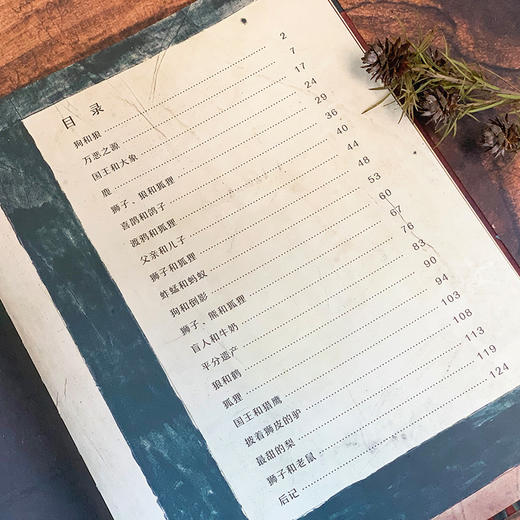 目 录
狗和狼 2
万恶之源 7
国王和大象 17
鹿 24
狮子、狼和狐狸 29
喜鹊和鸽子 36
渡鸦和狐狸 40
父亲和儿子 44
狮子和狐狸 48
蚱蜢和蚂蚁 53
狗和倒影 60
狮子、熊和狐狸 67
盲人和牛奶 76
平分遗产 83
狼和鹤 90
狐狸 94
国王和猎鹰 103
披着狮皮的驴 108
最甜的梨 113
狮子和老鼠 119
后记 124